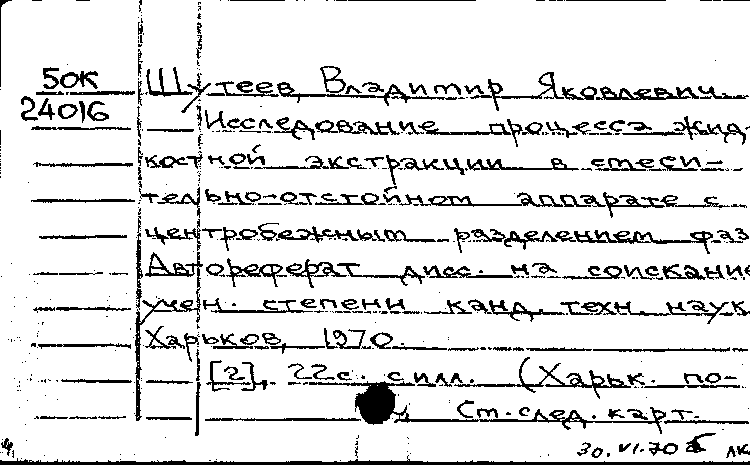 50К Шутеев, Владимир Яковлевич.
24016 Исследование процесса жид-
костной экстракции в смеси-
тельно-отстойном аппарате с
центробежным разделением фаз
Автореферат дисс. на соискание
учен. степени канд. техн. наук
Харьков, 1970.
[2], 22с. с илл. (Харьк. по-
Ст. след. карт.
30.VI.70